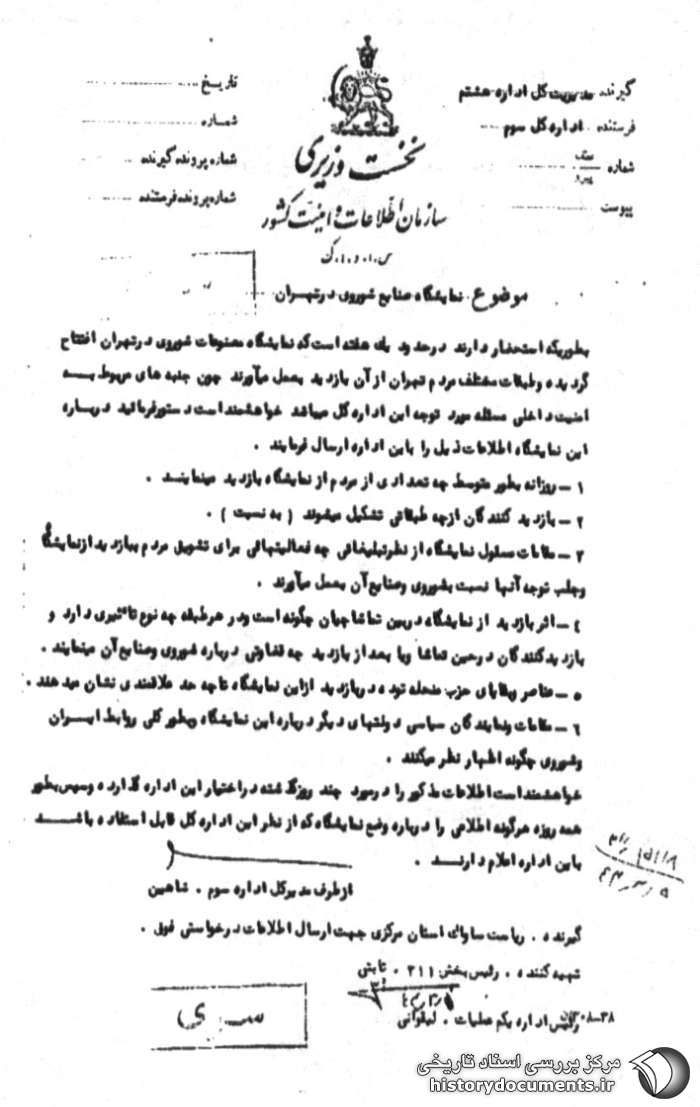 گیرنده مدیریت کل اداره هشتم
فرستنده اداره کل سوم
شماره
پیوست
نخست وزیری
سازمان اطلاعات و امنیت کشور
س.ا.و.ا.ک
تاریخ
شماره
شماره پرونده گیرنده
شماره پرونده فرستنده
موضوع نمایشگاه صنایع شوروی در تهران
بطوریکه استحضار دارند در حدود یک هفته است که نمایشگاه مصنوعات شوروی در تهران افتتاح
گردیده و طبقات مختلف مردم تهران از آن بازدید بعمل میآورند چون جنبه های مربوط به
امنیت داخلی مسئله مورد توجه این اداره کل میباشد خواهشمند است دستور فرمائید درباره
این نمایشگاه اطلاعات ذیل را باین اداره ارسال فرمایند .
۱ – روزانه بطور متوسط چه تعدادی از مردم از نمایشگاه بازدید مینمایند .
۲ – بازدید کنندگان از چه طبقاتی تشکیل میشوند ( به نسبت ) .
۳ – مقامات مسئول نمایشگاه از نظر تبلیغاتی چه فعالیتهائی برای تشویق مردم ببازدید از نمایشگاه
و جلب توجه آنها نسبت بشوروی و صنایع آن بعمل میآورند .
٤ – اثر بازدید از نمایشگاه در بین تماشاچیان چگونه است و در هر طبقه چه نوع تأثیری دارد و
بازدید کنندگان در حین تماشا ویا بعد از بازدید چه قضاوتی درباره شوروی و صنایع آن مینمایند .
٥ – عناصر و بقایای حزب منحله توده در بازدید از این نمایشگاه تا چه حد علاقمندی نشان میدهند .
٦ – مقامات و نمایندگان سیاسی دولتهای دیگر درباره این نمایشگاه و بطور کلی روابط ایران
و شوروی چگونه اظهار نظر میکنند .
خواهشمند است اطلاعات مذکور را در مورد چند روز گذشته در اختیار این اداره گذارده و سپس بطور
همه روزه هرگونه اطلاعی را درباره وضع نمایشگاه که از نظر این اداره کل قابل استفاده باشد
باین اداره اعلام دارند .
از طرف مدیر کل اداره سوم . شاهین
گیرنده . ریاست ساواک استان مرکزی جهت ارسال اطلاعات درخواستی فوق .
تهیه کننده . رئیس بخش ۳۱۱ . ثابتی
رئیس اداره یکم عملیات . لیقوانی
سری
مرکز بررسی اسناد تاریخی
historydocuments.ir